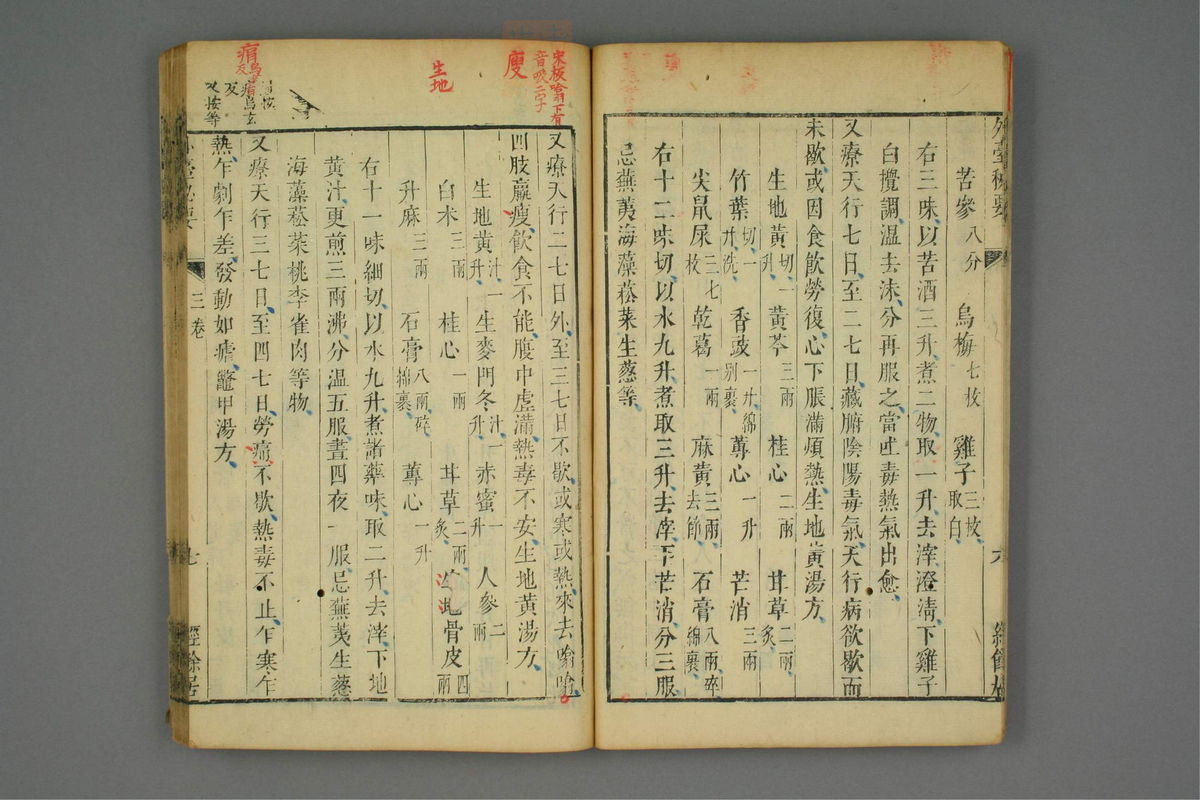 苦參八分　烏梅七枚　雞子三枚取白
右三味以苦酒三升煮二物取一升去滓澄清下雞子
白攪調温去沫分再服之當吐毒熱氣出愈
又療天行七日至二七日藏腑陰陽毒氣天行病欲歇而
未歇或因食飲勞復心下脹滿煩熱生地黃湯方
生地黃切一升　黃芩三兩　桂心二兩　甘草二兩炙
竹葉切一升洗　香豉一升綿別裹　蓴心一升　芒消三兩
尖鼠屎三七枚　乾葛一兩　麻黃三兩去節　石膏八兩碎綿裹
右十二味切以水九升煮取三升去滓下芒消分三服
忌蕪荑海藻菘菜生葱等
外臺秘要
六
經餘居
宋板噏下有
音吸二字
廋
生地
痟烏玄反
又療天行二七日外至三七日不歇或寒或熱來去噏噏
四肢羸瘦飲食不能腹中虛滿熱毒不安生地黃湯方
生地黃汁一升　生麥門冬汁一升　赤蜜一升　人參二兩
白术三兩　桂心一兩　甘草二兩炙　地骨皮四兩
升麻三兩　石膏八兩碎綿裹　蓴心一升
右十一味細切以水九升煮諸藥味取二升去滓下地
黃汁更煎三兩沸分温五服晝四夜一服忌蕪荑生葱
海藻菘菜桃李雀肉等物
又療天行三七日至四七日勞痟不歇熱毒不止乍寒乍
熱乍劇乍差發動如瘧鼈甲湯方
三卷
七
經餘居